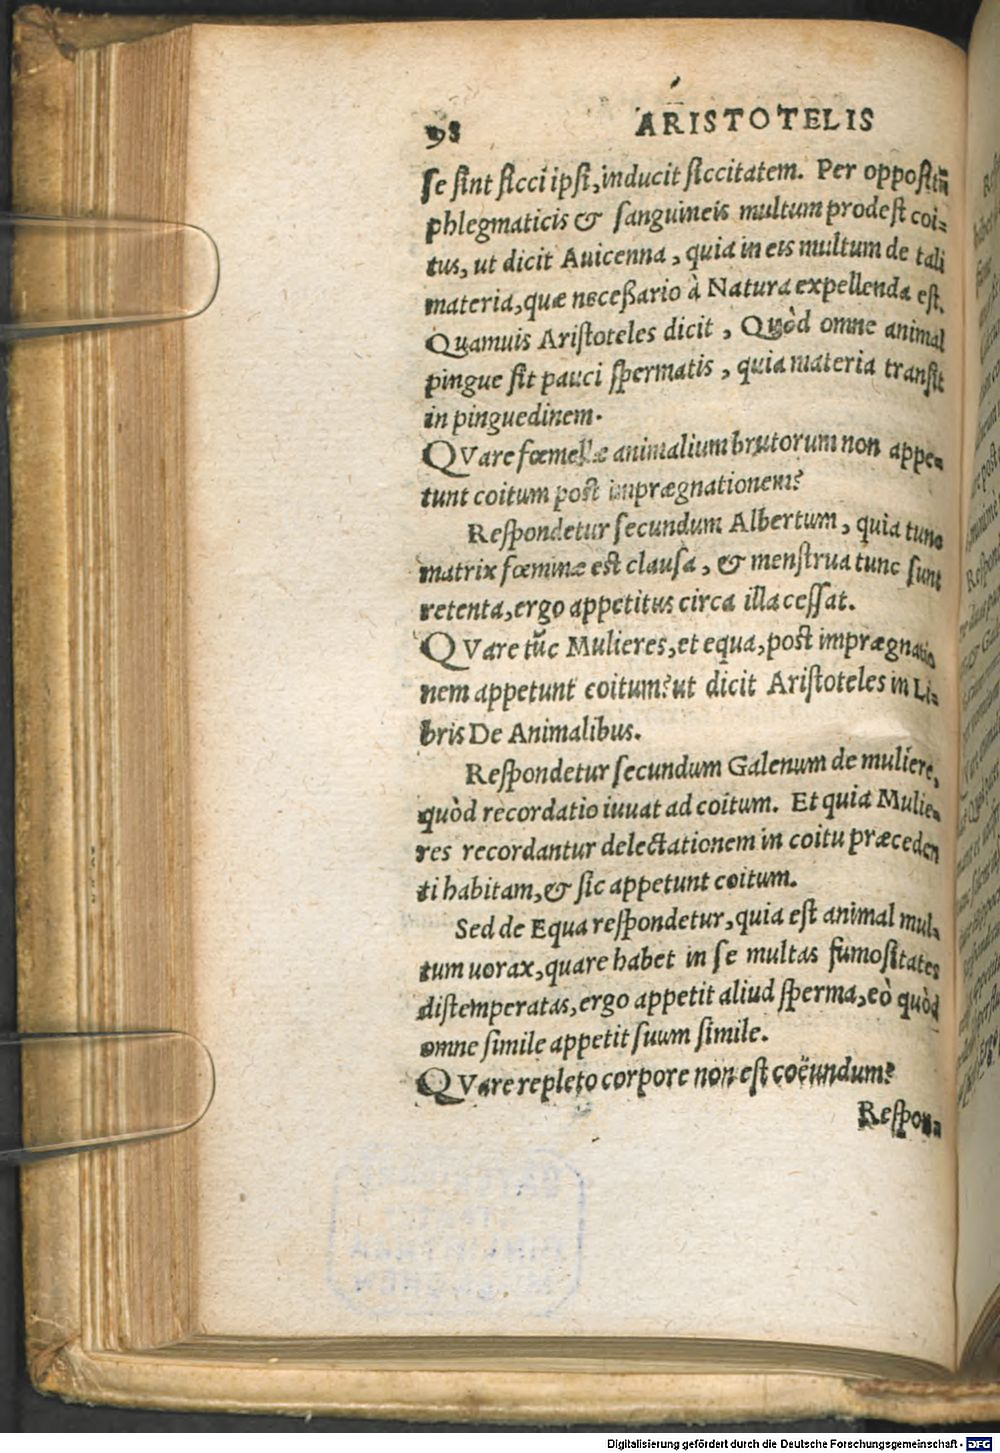 98 ARISTOTELIS
ſe ſint ſicci ipſi, inducit ſiccitatem. Per oppoſitũ
phlegmaticis & ſanguineis multum prodeſt coi-
tus, ut dicit Auicenna, quia in eis multum de tali
materia, quæ neceßario à Natura expellenda eſt.
Quamuis Ariſtoteles dicit, Quòd omne animal
pingue ſit pauci ſpermatis, quia materia tranſit
in pinguedinem.
QVare fœmellæ animalium brutorum non appe-
tunt coitum poſt imprægnationem?
Reſpondetur ſecundum Albertum, quia tunc
matrix fœminæ eſt clauſa, & menſtrua tunc ſunt
retenta, ergo appetitus circa illa ceſſat.
QVare tũc Mulieres, et equa, poſt imprægnatio
nem appetunt coitum? ut dicit Ariſtoteles in Li-
bris De Animalibus.
Reſpondetur ſecundum Galenum de muliere,
quòd recordatio iuuat ad coitum. Et quia Mulie-
res recordantur delectationem in coitu præceden
ti habitam, & ſic appetunt coitum.
Sed de Equa reſpondetur, quia eſt animal mul-
tum uorax, quare habet in ſe multas fumoſitates
diſtemperatas, ergo appetit aliud ſperma, eò quòd
omne ſimile appetit ſuum ſimile.
QVare repleto corpore non eſt coëundum?
Reſpon-
Digitalisierung gefördert durch die Deutsche Forschungsgemeinschaft - DFG